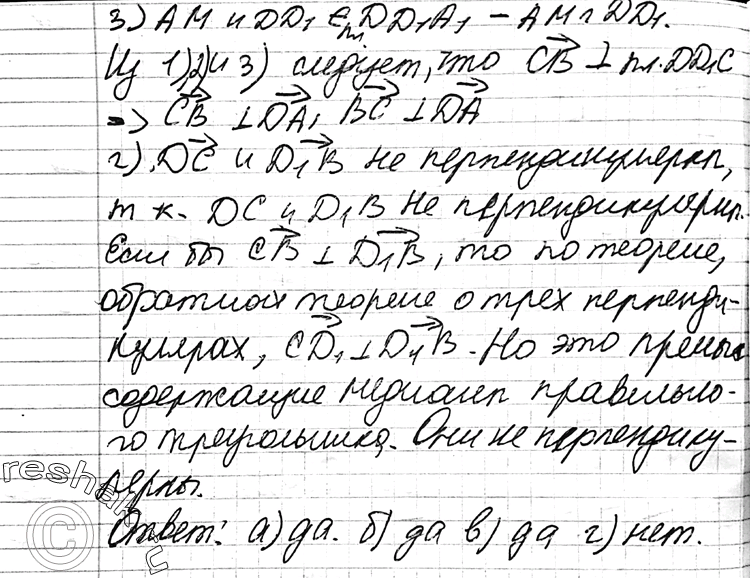 3) AM и DD₁ ∈ пл. DD₁A₁ – AM ∩ DD₁.
Из 1)2)и 3) следует, что CB ⊥ пл. DD₁C
=> CB ⊥ DA₁ BC ⊥ DA
г) DC и D₁B не перпендикулярны,
т к. DC и D₁B не перпендикулярн.
Если бы CB ⊥ D₁B, то по теореме,
обратной теореме о трех перпенди-
кулярах, CD₁ ⊥ D₁B. Но это прямые
содержащие медианы правильно-
го треугольника. Они не перпендику-
лярны.
Ответ: а) да. б) да в) да г) нет.
resha